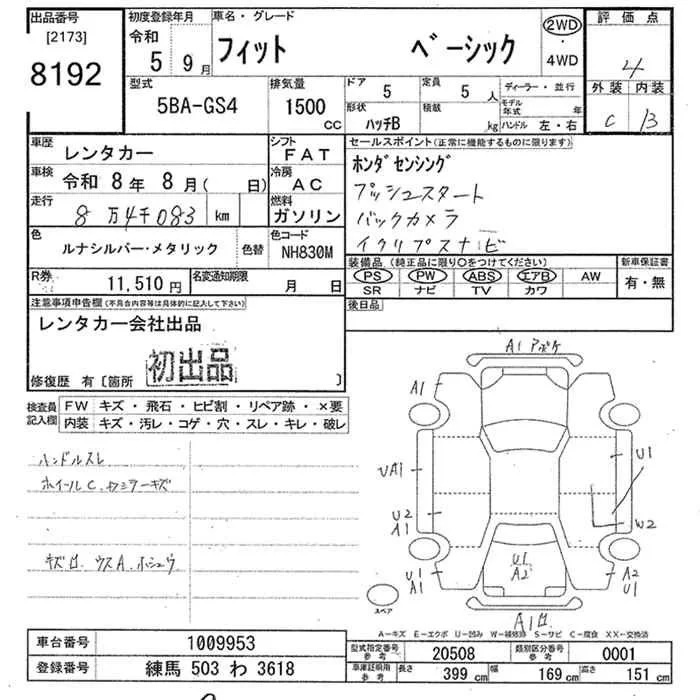 出品番号 初度登録年月 車名・グレード 評価点
[2173] 令和 5 9月 フィット ベーシック 2WD・4WD 4
8192 外装 内装
C B
型式 排気量 ドア 定員 ディーラー・並行
5BA-GS4 1500CC 5 5人 モデル年式 年
形状 積載
ハッチB kg ハンドル 左・右
車歴 レンタカー シフト FAT セールスポイント(正常に機能するものに限ります)
車検 令和 8年 8月( 日) 冷房 AC ホンダセンシング
プッシュスタート
走行 8万4千083 km 燃料 ガソリン バックカメラ
イクリプスナビ
色 ルナシルバー・メタリック 色替 色コード NH830M
装備品(純正品に限り○をつけてください) 新車保証書
R券 11,510円 名変通知期限 月 日 PS PW ABS エアB AW 有・無
SR ナビ TV カワ
注意事項申告欄(不具合内容等は具体的に記入して下さい) 後日品
レンタカー会社出品
初出品
修復歴 有〔箇所 〕
検査員記入欄 FW キズ・飛石・ヒビ割・リペア跡・×要
内装 キズ・汚レ・コゲ・穴・スレ・キレ・破レ
ハンドルスレ
ホイールC.カミラーキズ
キズ口 ウスA.ホシュウ
A1 アポケ
A1
UA1 U1
U2 A1 W2
U1 A2
U1 A1 A2 U1
スペア
A1口
A-キズ E-エクボ U-凹み W-補修跡 S-サビ C-腐食 XX-交換済
車台番号 1009953
型式指定番号 参考 20508 類別区分番号 参考 0001
登録番号 練馬 503 わ 3618
車庫証明用 参考 長さ 399 cm 幅 169 cm 高さ 151 cm